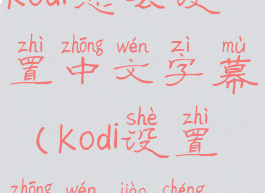 Kodi怎么设
zhì zhōng wén zì mù
置中文字幕
shè zhì
(Kodi设置
zhōng wén jiào chéng